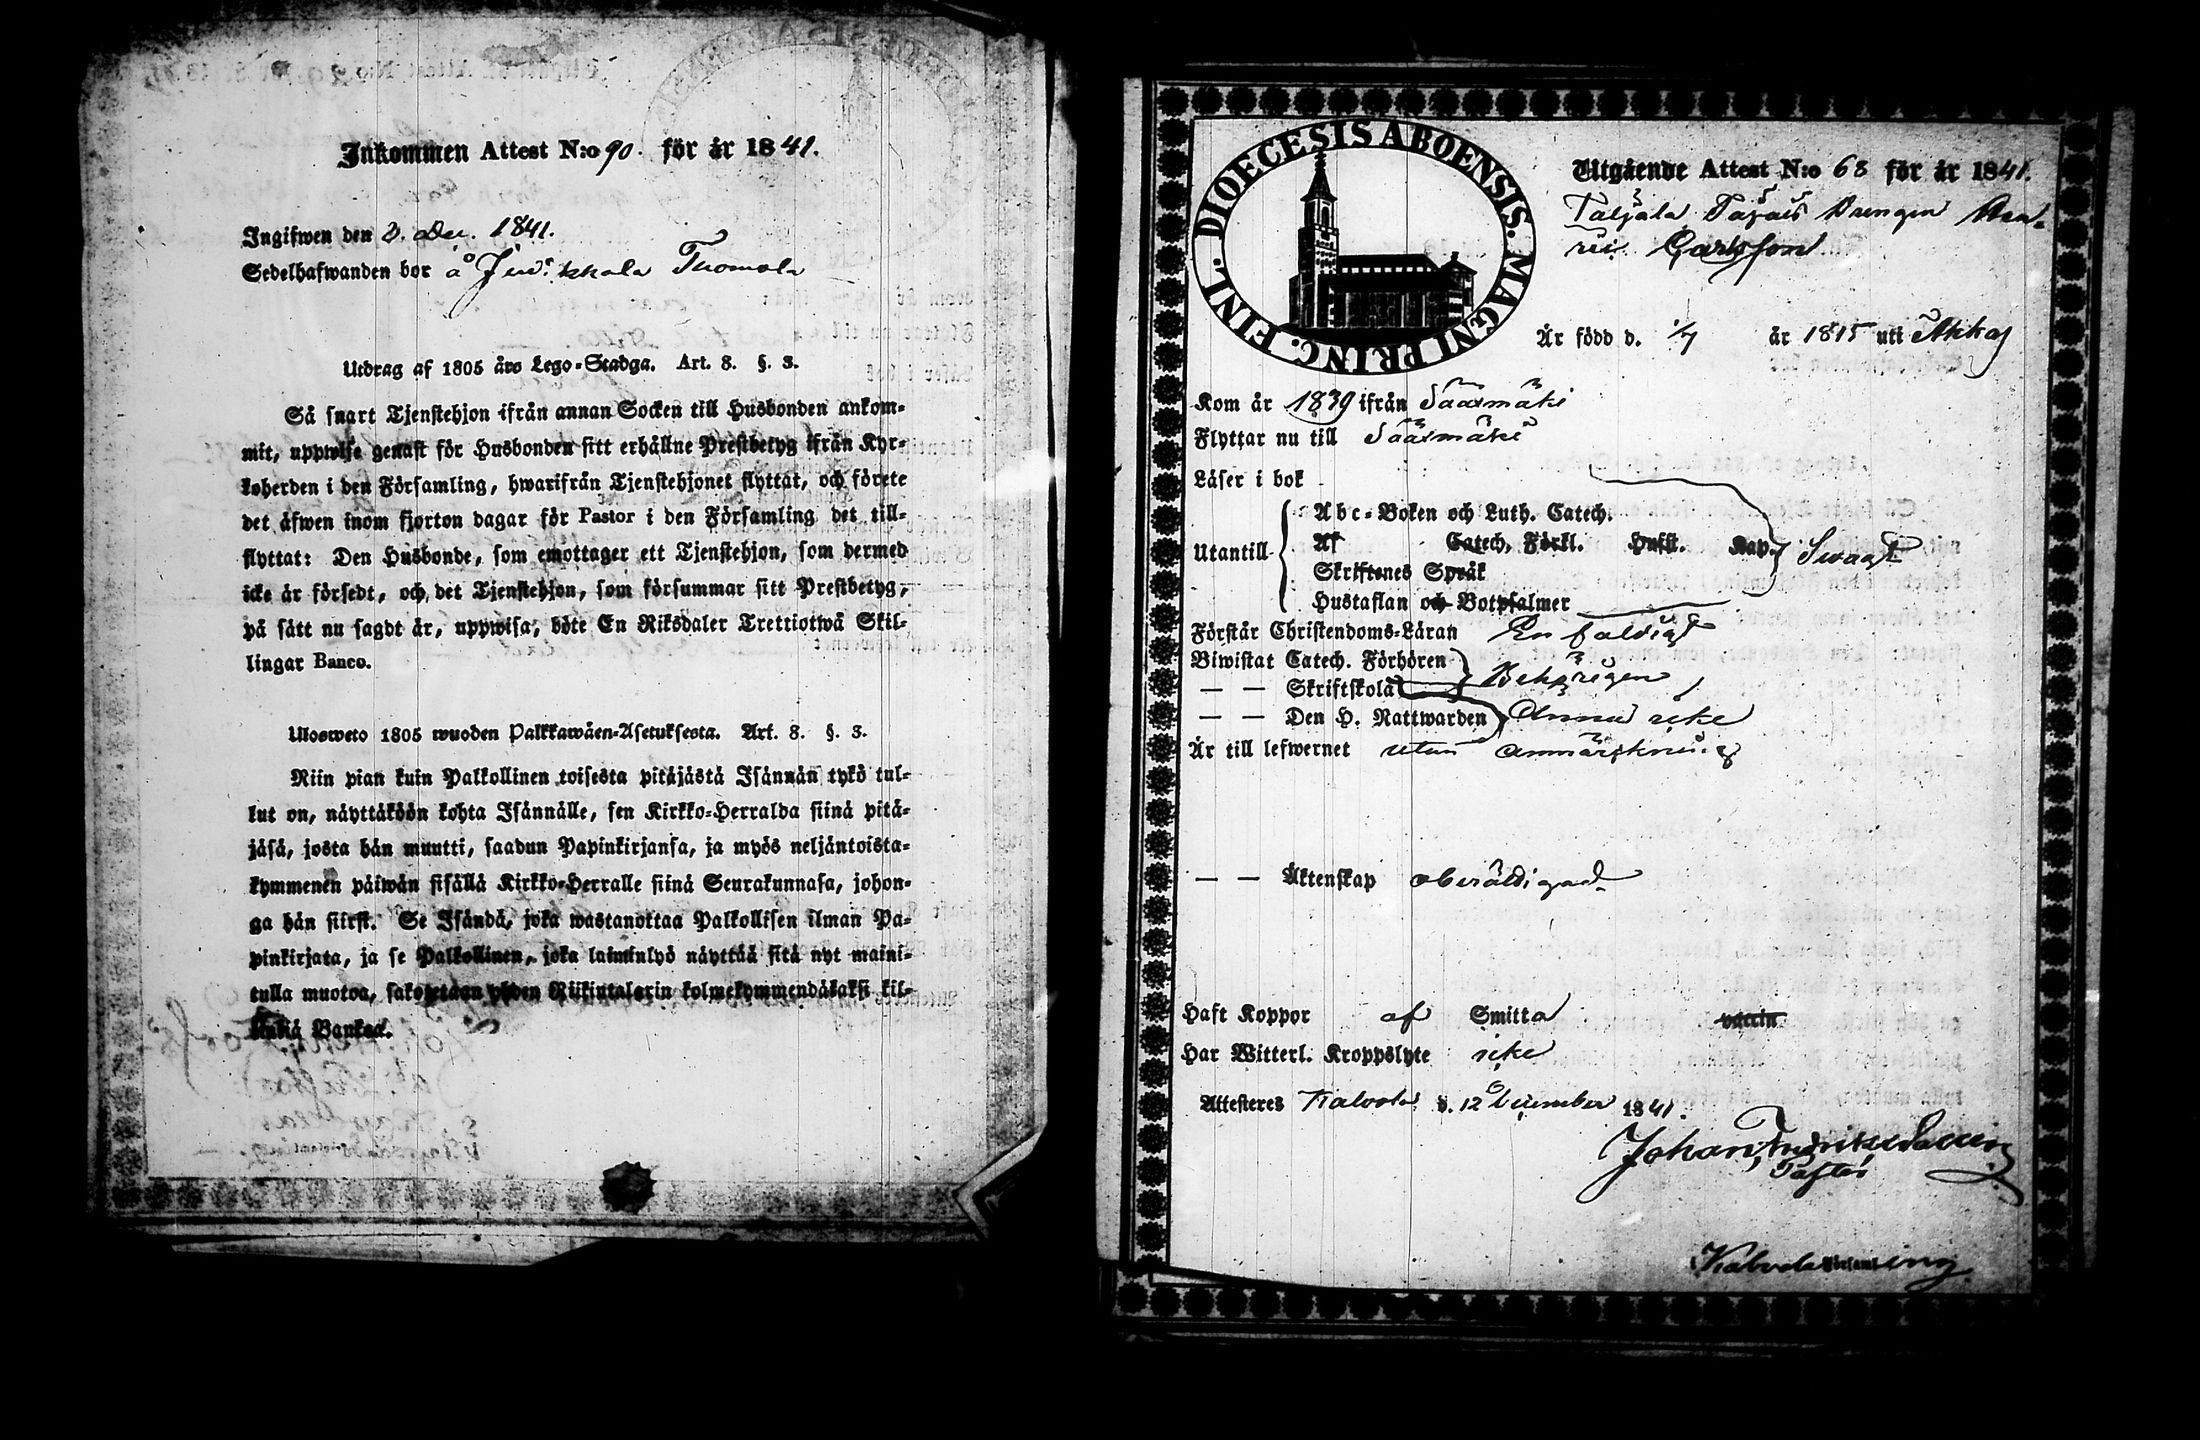 Inkommen Attest N:o 90. för år 1841.
Ingifwen den 2. Dec. 1841.
Sedelhafwanden bor å Thomola
Utdrag af 1805 års Lego-Stadga. Art. 8. §. 3.
Så snart Tjenstehjon ifrån annan Socken till Husbonden ankom-
mit, uppwise genast för Husbonden sitt erhållne Prestbetyg ifrån Kyr-
koherden i den Församling, hwarifrån Tjenstehjonet flyttat, och förete
det äfwen inom fjorton dagar för Pastor i den Församling det till-
flyttat: Den Husbonde, som emottager ett Tjenstehjon, som dermed
icke är försedt, och det Tjenstehjon, som försummar sitt Prestbetyg,
på sätt nu sagdt är, uppwisa, böte En Riksdaler Trettiotwå Skil-
lingar Banco.
Ulosweto 1805 wuoden Palkkawäen-Asetuksesta. Art. 8. §. 3.
Niin pian kuin Palkollinen toisesta pitäjästä Isännän tykö tul-
lut on, näyttäköön kohta Isännälle, sen Kirkko-Herralda siinä pitä-
jäsä, josta hän muutti, saadun Papinkirjansa, ja myös neljäntoista-
kymmenen päiwän sisällä Kirkko-Herralle siinä Seurakunnasa, johon-
ga hän siirsi. Se Isändä, joka wastanottaa Palkollisen ilman Pa-
pinkirjata, ja se Palkollinen, joka laiminlyö näyttää sitä nyt maini-
tulla muotoa, sakotetaan yhden Riikintalarin kolmekymmendäkaksi kil-
linkiä Bankoa.
DIOECESIS ABOENSIS. MAGNI PRINC. FINL.
Utgående Attest N:o 68 för år 1841.
Taljala Drengen
Carlsson
Är född d. 1/7 år 1815 uti Akkas
Kom år 1839 ifrån Sääxmäki
Flyttar nu till Sääxmäki
Läser i bok
Abc-Boken och Luth. Catech.
Utantill Af Catech. Förkl. Hufst. Kap. Swagt
Skriftenes Språk
Hustaflan och Botpsalmer
Förstår Christendoms-Läran Enfaldigt
Biwistat Catech. Förhören
— — Skriftskola Behörigen
— — Den H. Nattwarden
Är till lefwernet utan anmärkning
— — Äktenskap obesäldigad
Haft Koppor af Smitta vaccin
Har Witterl. Kroppslyte icke
Attesteras Kalvola d. 12 December 1841.
Johan
Pastor
Kalvola Församling